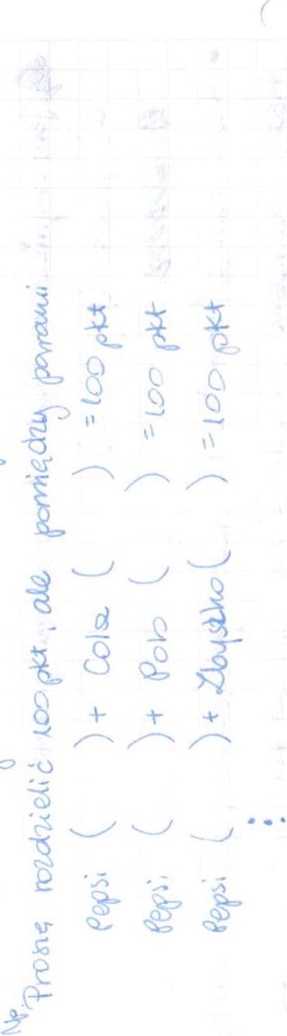 Np.
Proszę rozdzielić 100 pkt, ale pomiędzy parami
Pepsi ( ) + Cola ( ) = 100 pkt
Pepsi ( ) + Polo ( ) = 100 pkt
Pepsi ( ) + Zbyszko ( ) = 100 pkt
⋮